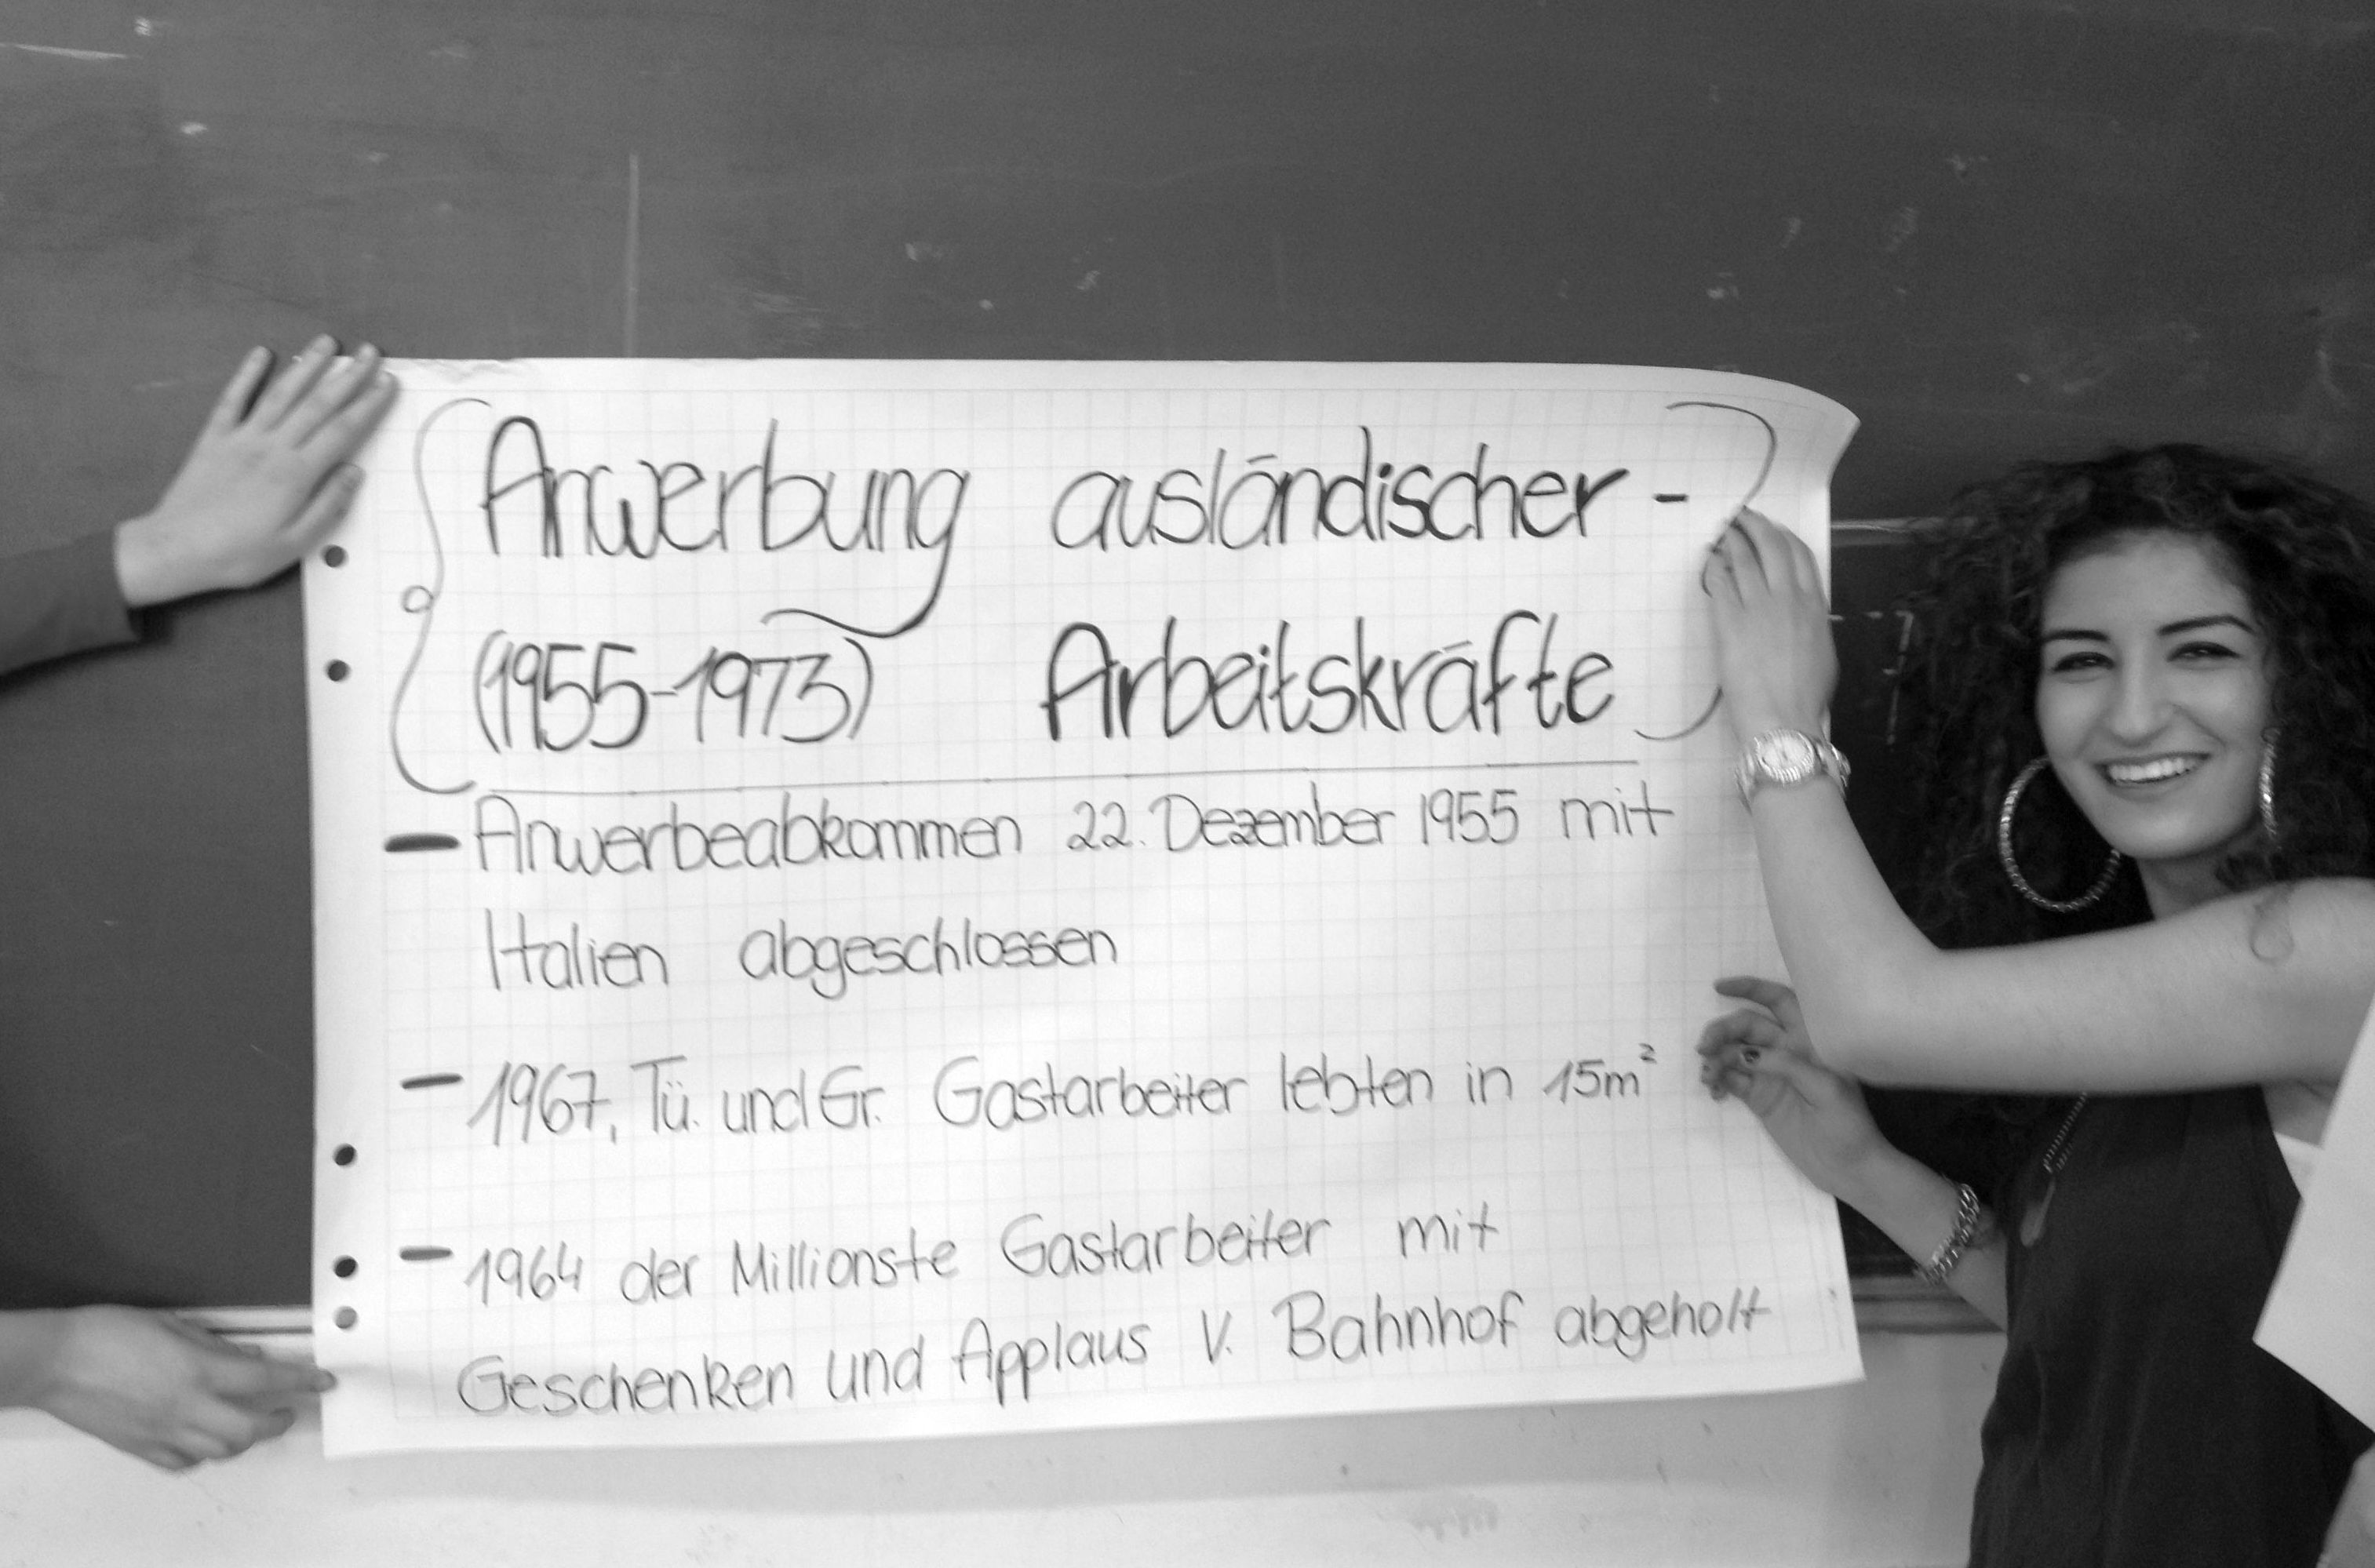 Anwerbung ausländischer -
(1955-1973) Arbeitskräfte
- Anwerbeabkommen 22. Dezember 1955 mit
Italien abgeschlossen
- 1967, Tü. und Gr. Gastarbeiter lebten in 15m²
- 1964 der Millionste Gastarbeiter mit
Geschenken und Applaus V. Bahnhof abgeholt